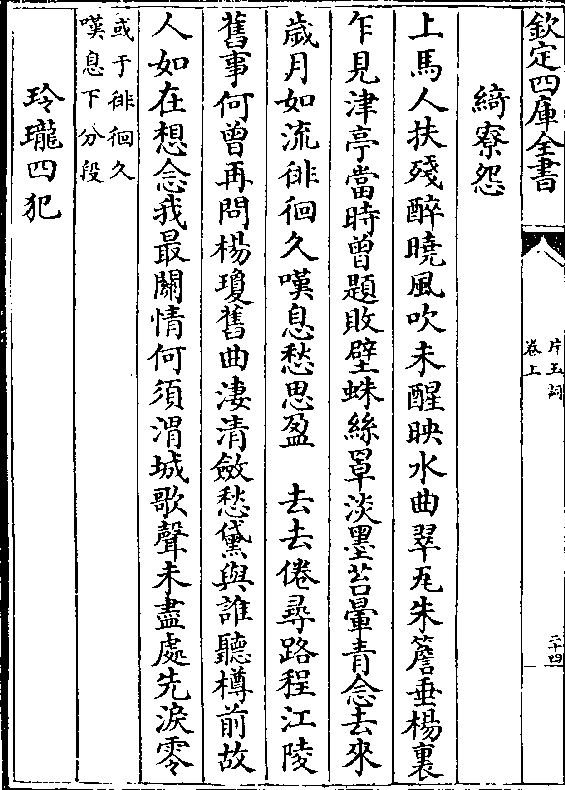 欽定四庫全書
片玉詞
卷上
二十四
綺寮怨
上馬人扶殘醉曉風吹未醒映水曲翠瓦朱簷垂楊裏
乍見津亭當時曾題敗壁蛛絲罩淡墨苔暈青念去來
歲月如流徘徊久嘆息愁思盈　去去倦尋路程江陵
舊事何曾再問楊瓊舊曲淒清斂愁黛與誰聽樽前故
人如在想念我最關情何須渭城歌聲未盡處先淚零
或于徘徊久
嘆息下分段
玲瓏四犯